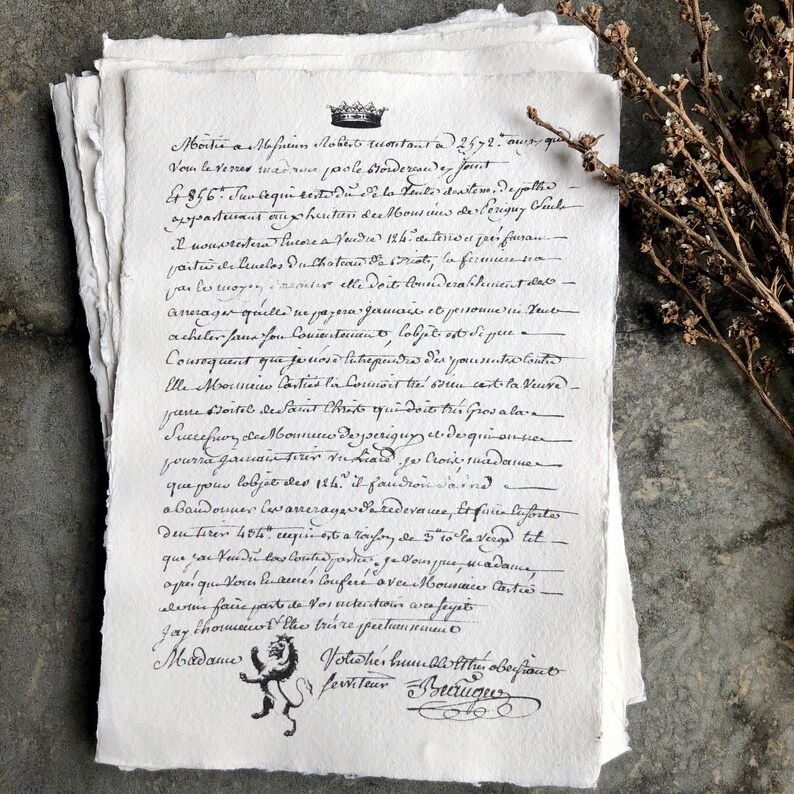 Moitié a Messieurs Robert montant à 2572.# ainsy que
vous le verrez madame par le Bordereau cy Joint
Et 856.# Sur ce qui reste du de la vente des terres de
appartenant aux héritiers de Monsieur de Périgny Seuls
il nous restera Encore a Vendre 124.v de terre et prés faisant
partie de l'enclos du Chateau de la fermière n'a
pas le moyen elle doit Considerablement des
arrerages qu'elle ne payera Jamais et personne ni Veut
acheter sans son Consentement, l'objet est de peu
Consequent que je n'ose Entreprendre des poursuites Contre
Elle Monsieur Cartier la Connoit très bien c'est la Veuve
pierre de Saint Christ qui doit très Gros a la
Succession de Monsieur de perigny et de qui on ne
pourra Jamais tirer un Liard. je Crois, madame
que pour l'objet des 124.v il faudroit
abandonner les arrerages de redevance, Et faire Ensorte
d'en tirer 434.# ce qui est a raison de 3.# 10.s la verge tel
que j'ai Vendu la Contre partie, je vous prie, madame,
après que Vous En aurés Conféré avec Monsieur Cartié
de me faire part de Vos intentions a ce sujet
J'ay l'honneur d'Etre très respectueusement
Madame Votre très humble Et très obeissant
serviteur Beruger